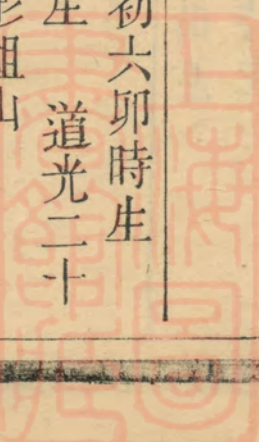 初六卯時生
生　道光二十
彭祖山